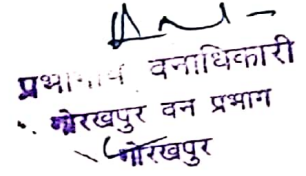 प्रभागीय वनाधिकारी
गोरखपुर वन प्रभाग
गोरखपुर